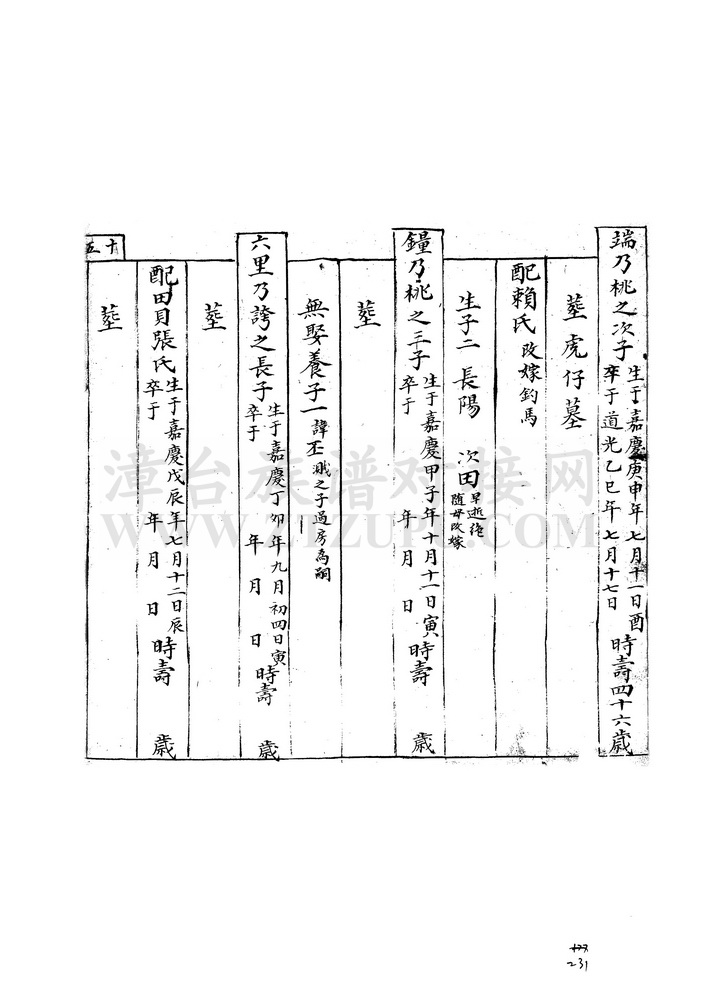 端乃桃之次子 生于嘉慶庚申年七月十一日酉時壽四十六歲
卒于道光乙巳年七月十七日
葬虎仔墓
配賴氏 改嫁釣馬
生子二 長陽 次田 早逝絕
隨母改嫁
鐘乃桃之三子 生于嘉慶甲子年十月十一日寅時壽 歲
卒于 年 月 日
葬
無娶養子一 諱丕 濺之子過房為嗣
六里乃誇之長子 生于嘉慶丁卯年九月初四日寅時壽 歲
卒于 年 月 日
葬
配田貝張氏 生于嘉慶戊辰年七月十二日辰時壽 歲
卒于 年 月 日
葬
十五
漳台族谱对接网
WWW.ZTZUPU.COM
177
231